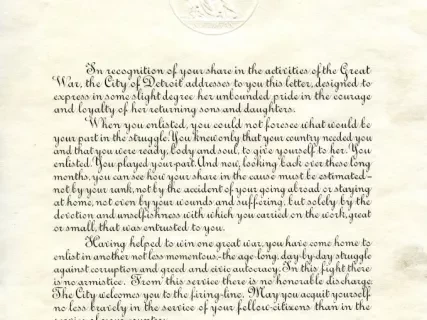 In recognition of your share in the activities of the Great
War, the City of Detroit addresses to you this letter, designed to
express in some slight degree her unbounded pride in the courage
and loyalty of her returning sons and daughters.
When you enlisted, you could not foresee what would be
your part in the struggle. You knew only that your country needed you
and that you were ready, body and soul, to give yourself to her. You
enlisted. You played your part. And now, looking back over these long
months, you can see how your share in the cause must be estimated—
not by your rank, not by the accident of your going abroad or staying
at home, not even by your wounds and suffering, but solely by the
devotion and unselfishness with which you carried on the work, great
or small, that was entrusted to you.
Having helped to win one great war, you have come home to
enlist in another not less momentous—the age-long, day-by-day struggle
against corruption and greed and civic autocracy. In this fight there
is no armistice. From this service there is no honorable discharge.
The City welcomes you to the firing-line. May you acquit yourself
no less bravely in the service of your fellow-citizens than in the
service of your country.